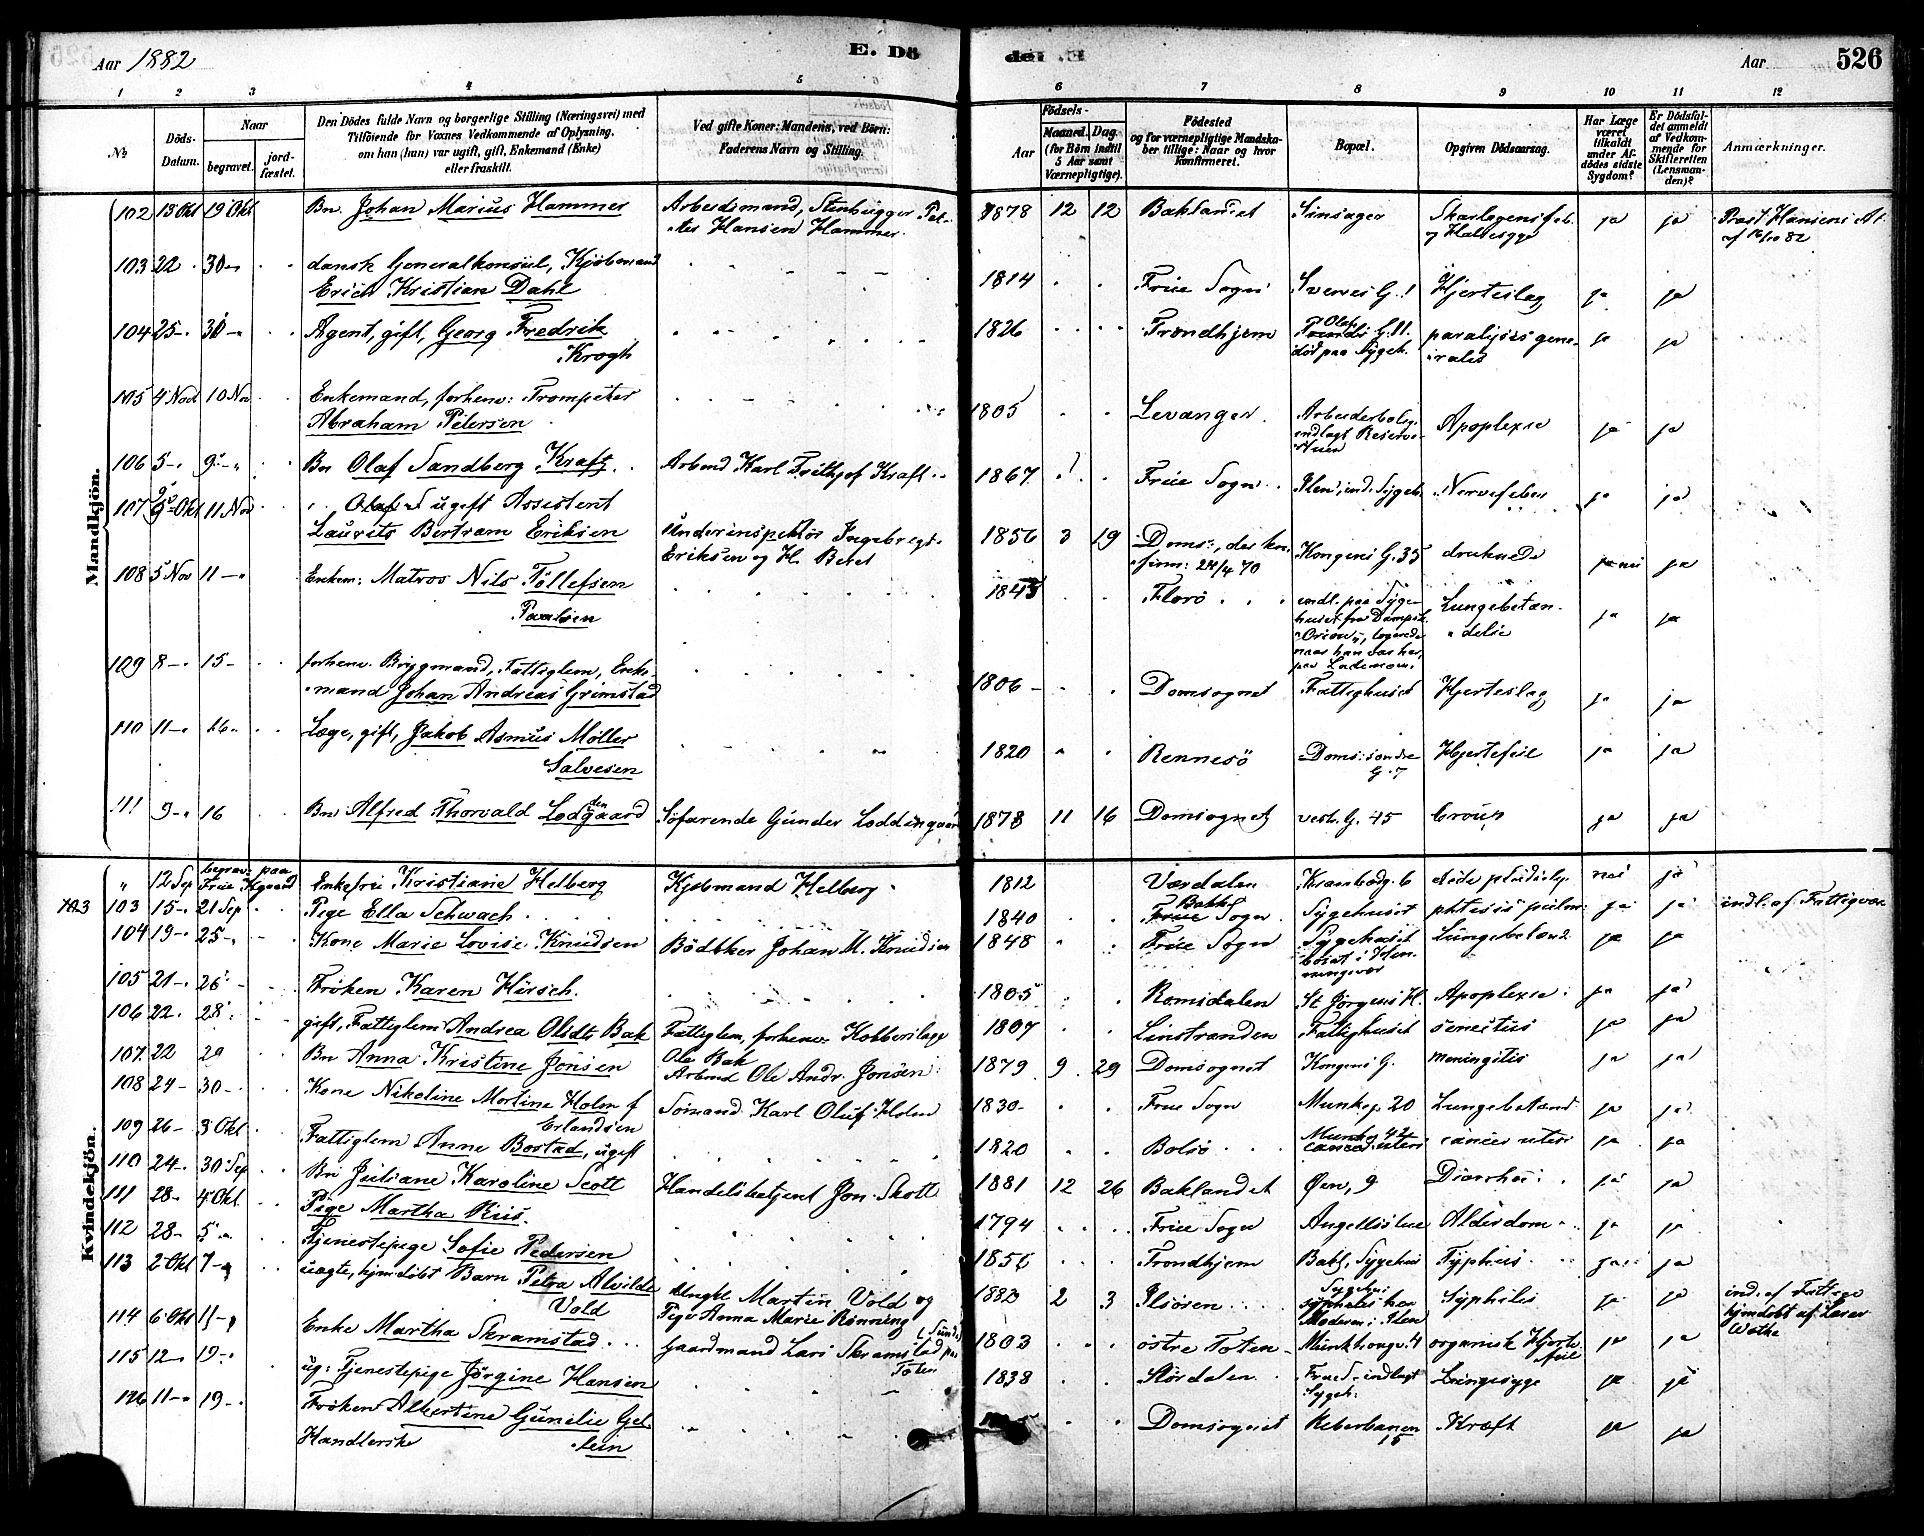 Aar 1882
E. Dö
der E.
Aar
526
1 2 3 4 5 6 7 8 9 10 11 12
No
Döds-Datum.
Naar
begravet.
jordfæstet.
Den Dödes fulde Navn og borgerlige Stilling (Næringsvei) med
Tilföiende for Voxnes Vedkommende af Oplysning,
om han (hun) var ugift, gift, Enkemand (Enke)
eller fraskilt.
Ved gifte Koner: Mandens, ved Börn:
Faderens Navn og Stilling.
Födsels-
Aar
Maaned. Dag.
(for Börn indtil
5 Aar samt
Værnepligtige).
Födested
og for værnepligtige Mandskaber tillige: Naar og hvor
konfirmeret.
Bopæl.
Opgiven Dödsaarsag.
Har Læge
været
tilkaldt
under Afdödes sidste
Sygdom?
Er Dödsfaldet anmeldt
af Vedkommende for
Skifteretten
(Lensmanden)?
Anmærkninger.
Mandkjön.
102 13 Okt 19 Okt Bn. Johan Marius Hammer Arbeidsmand, Stenhugger Petter Hansen Hammer 1878 12 12 Baklandet Sinsager Skarlagensfeb. og Halssyge ja ja Præst Hansens At. af 16/10 82
103 22 30 dansk Generalkonsul, Kjöbmand
Erich Kristian Dahl 1814 Frue Sogn Sverres G. 1 Hjerteslag ja ja
104 25 30 Agent, gift, Georg Fredrik
Krogh 1826 Trondhjem Olafs G. 11. död paa Sygeh. paralysis generales ja ja
105 4 Nov 10 Nov Enkemand, forhenv: Trompeter
Abraham Petersen 1805 Levanger Arbeiderbolig indlagt Reserve Apoplexie ja ja
106 5 9 Bn Olaf Sandberg Kraft Arbmd Karl Frithjof Kraft 1867 Frue Sogn Ilen, ind. Sygeh. Nervefeber ja ja
107 Okt 11 Nov ugift Assistent
Laurits Bertram Eriksen Underinspektör Ingebregt Eriksen og H. 1856 3 19 Doms:, der konfirm: 24/4 70 Kongens G. 35 druknede nei ja
108 5 Nov 11 Enkem: Matros Nils Töllefsen
Paulsen Florö indl. paa Sygehuset fra Dampsk. "Orion", logerede naar han var her, paa Lademoen. Lungebetændelse ja ja
109 8 15 forhenv. Bryggmand, Fattiglem, Enkemand Johan Andreas Grimstad 1806 Domsognet Fattighuset Hjerteslag ja ja
110 11 16 Læge, gift, Jakob Asmus Möller
Salvesen 1820 Rennesö Doms: söndre G. 7 Hjertefeil ja ja
111 9 16 Bn Alfred Thorvald Loddengaard Söfarende Gunder Loddengaard 1878 11 16 Domsognet vestr. G. 45 Croup ja ja
Kvindekjön.
" 12 Sep begrav: paa Frue Kgaard Enkefru Kristiane Helberg Kjöbmand Helberg 1812 Værdalen Krambodg. 6 nei ja
103 103 15 21 Sep Pige Ella Schwach 1840 Bakl. Sogn Sygehuset phtisis pulm: ja ja indl. af Fattigvæs
104 19 25 Kone Marie Lovise Knudsen Bödtker Johan M. Knudsen 1848 Frue Sogn Sygehuset bosat i Henningsvær Lungebetænd. ja ja
105 21 26 Fröken Karen Hirsch. 1805 Romsdalen St Jörgens H. Apoplexie ja ja
106 22 28 gift, Fattiglem Andrea Olsdt Bak Fattiglem, forhenv. Kobberslager Ole Bak 1807 Linstranden Fattighuset senectus ja ja
107 22 29 Bn Anna Kristine Jönsen Arbmd Ole Andr. Jonsen 1879 9 29 Domsognet Kongens G. meningitis ja ja
108 24 30 Kone Nikoline Martine Holm f
Erlandsen Sömand Karl Oluf Holm 1830 Frue Sogn Munkg. 20 Lungebetænd. ja ja
109 26 3 Okt Fattiglem Anne Bostad, ugift 1820 Bolsö Munkg 42 cancer uteri ja ja
110 24 30 Sep Bn Juliane Karoline Scott Handelsbetjent Jon Skott 1881 12 26 Baklandet Öen, 9 Diarrhoe ja ja
111 28 4 Okt. Pige Martha Riis. 1794 Frue Sogn Alderdom ja ja
112 28 5 Tjenestepige Sofie Pedersen Trondhjem Bakl, Sygehus Typhus ja ja
113 2 Okt 7 uægte, hjemdöbt Barn Petra Alvilde
Vold Ungkl Martin Vold og Pige Anna Marie Rönning 1882 2 3 Ilsören Sygehus Moderen i Ilen Syphilis ja ja ind. af Fattigv hjemdöbt af Lærer Wothe
114 6 Okt 11 Enke Martha Skramstad Gaardmand Lars Skramstad paa Toten 1803 östre Toten Munkhaugv. 4 organisk Hjertefeil ja ja
115 12 19 ug: Tjenestepige Jörgine Hansen 1838 Stördalen Frue S. indlagt Sygeh: Lungesyge ja ja
116 11 19 Fröken Albertine Gunilie Gellein
Handlerske Domsognet Reberbanen 15 Kræft ja ja